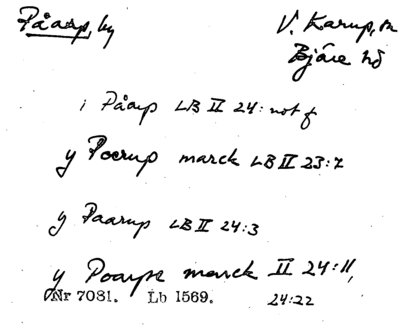 Påarp, by V. Karup, sn
Bjäre hd
i Påarp LB II 24: not f
y Poerup marck LB II 23:7
y Paarup LB II 24:3
y Poarps marck II 24:11,
Nr 7081. Lb 1569. 24:22